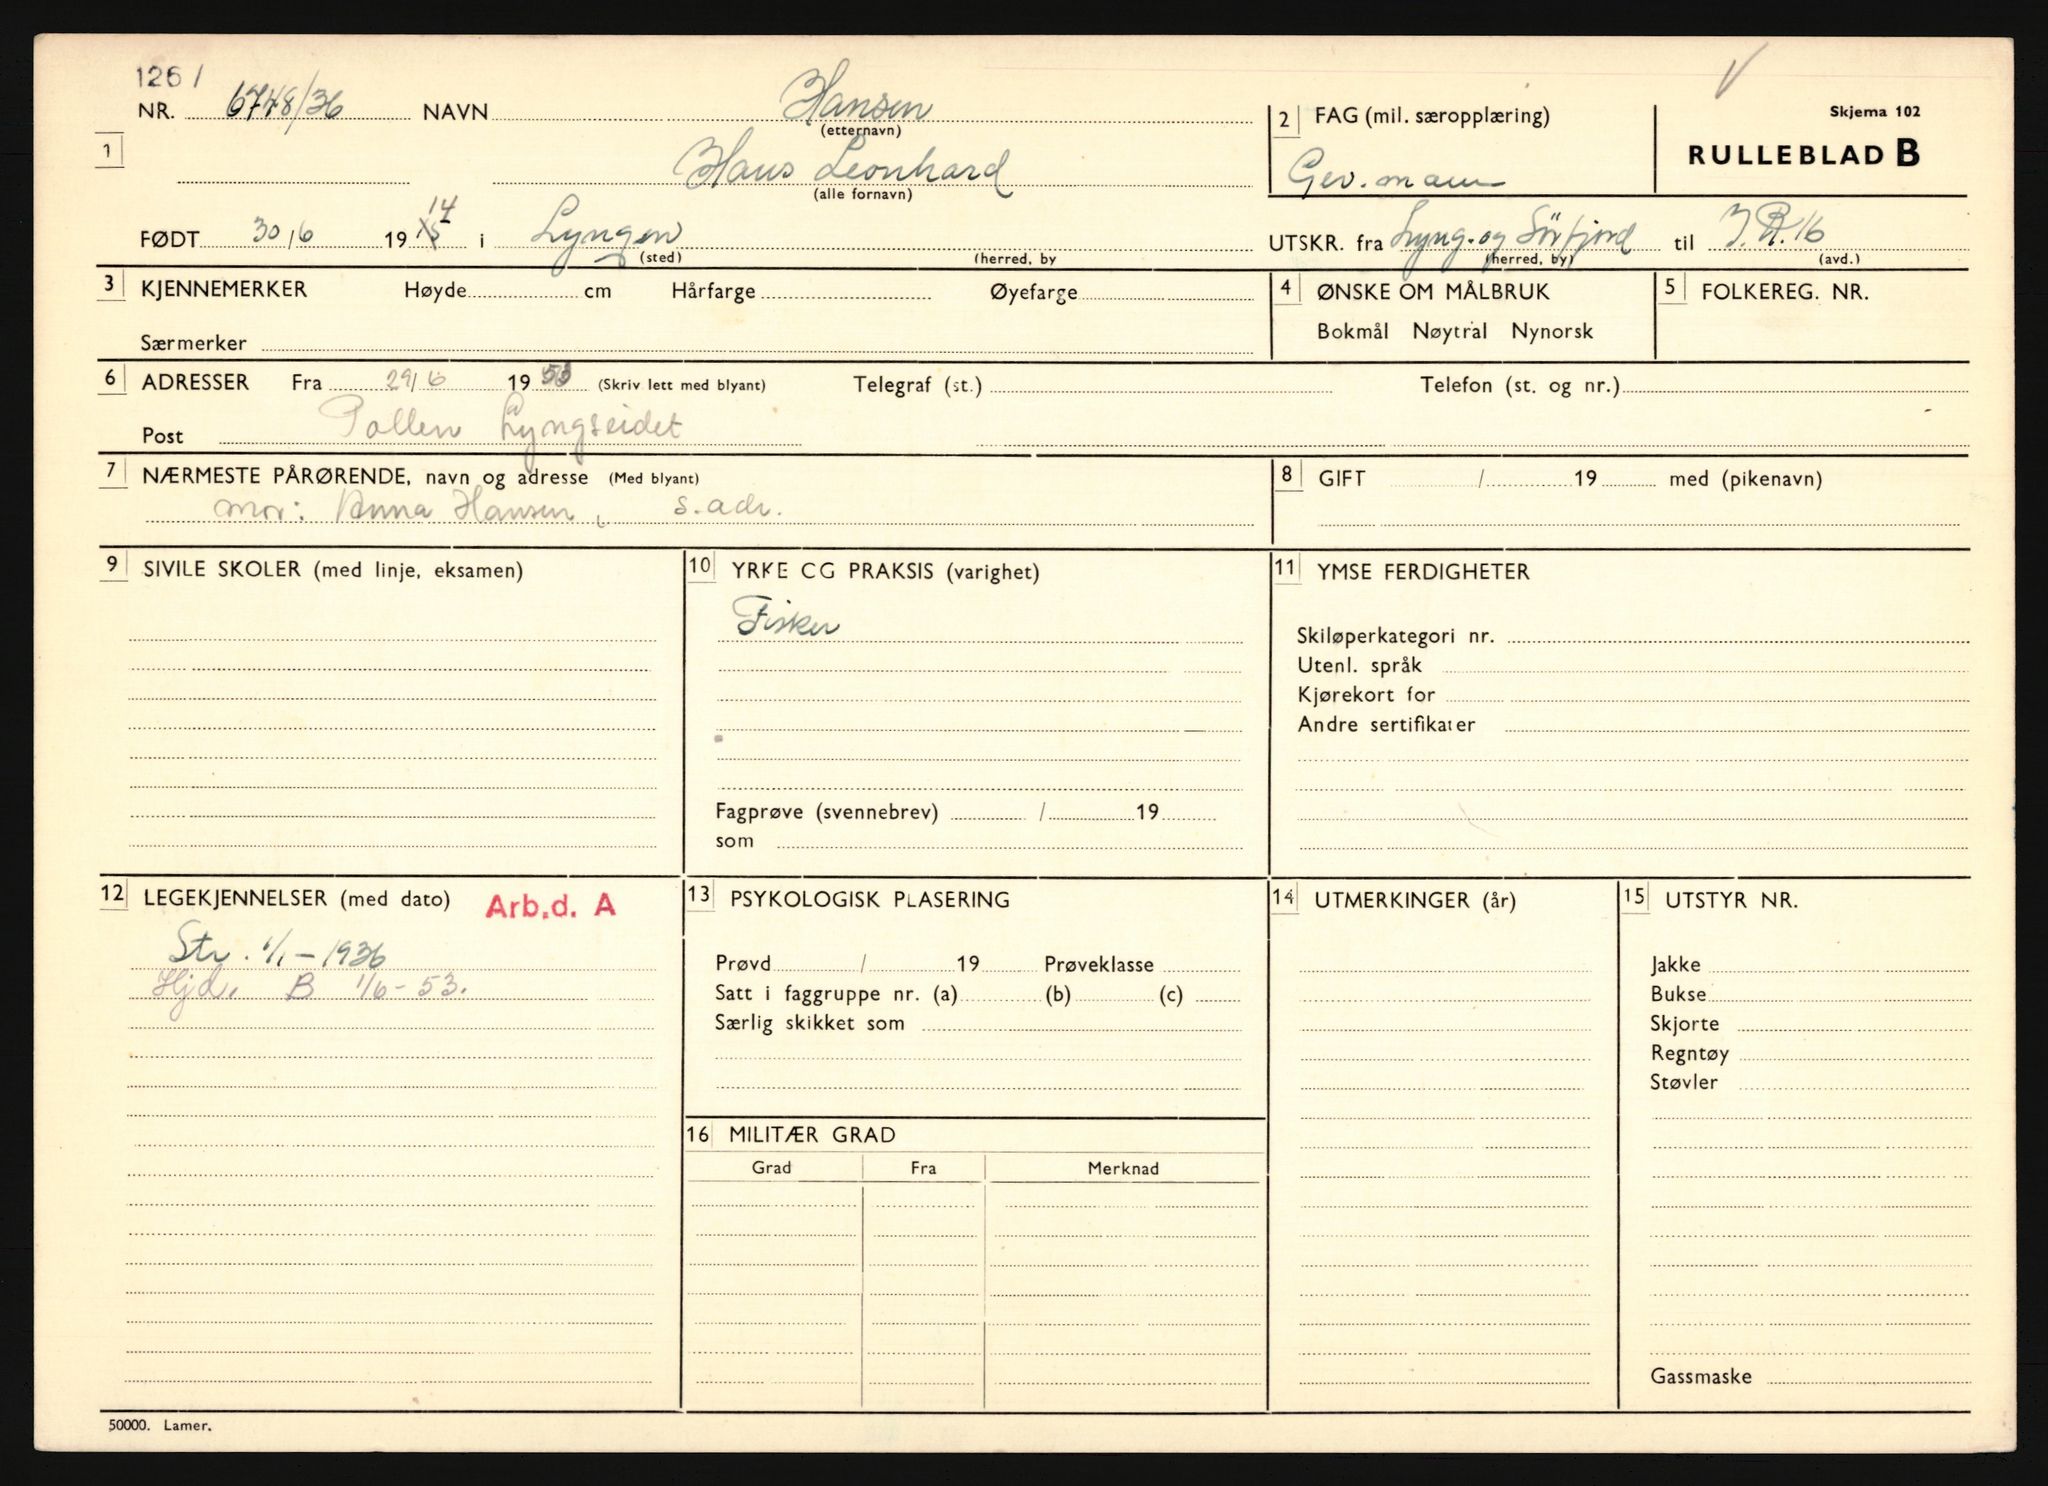 1261
NR. 6748/36 NAVN Hansen
(etternavn)
2 FAG (mil. særopplæring)
Skjema 102
RULLEBLAD B
1
Hans Leonhard
(alle fornavn)
Gev. mann
FØDT 30/6 1915 14 i Lyngen
(sted) (herred, by
UTSKR. fra Lyng. og Sörfjord til I.R. 16
(herred, by) (avd.)
3 KJENNEMERKER Høyde cm Hårfarge Øyefarge
Særmerker
4 ØNSKE OM MÅLBRUK
Bokmål Nøytral Nynorsk
5 FOLKEREG. NR.
6 ADRESSER Fra 29/6 1953 (Skriv lett med blyant) Telegraf (st.) Telefon (st. og nr.)
Post Pollen Lyngseidet
7 NÆRMESTE PÅRØRENDE, navn og adresse (Med blyant)
mor: Anna Hansen, s. adr.
8 GIFT / 19 med (pikenavn)
9 SIVILE SKOLER (med linje, eksamen)
10 YRKE CG PRAKSIS (varighet)
Fisker
Fagprøve (svennebrev) / 19
som
11 YMSE FERDIGHETER
Skiløperkategori nr.
Utenl. språk
Kjørekort for
Andre sertifikater
12 LEGEKJENNELSER (med dato) Arb.d. A
Str. 1/1 - 1936
Hjd. B 1/6 - 53.
13 PSYKOLOGISK PLASERING
Prøvd / 19 Prøveklasse
Satt i faggruppe nr. (a) (b) (c)
Særlig skikket som
14 UTMERKINGER (år)
15 UTSTYR NR.
Jakke
Bukse
Skjorte
Regntøy
Støvler
Gassmaske
16 MILITÆR GRAD
Grad Fra Merknad
50000. Lamer.